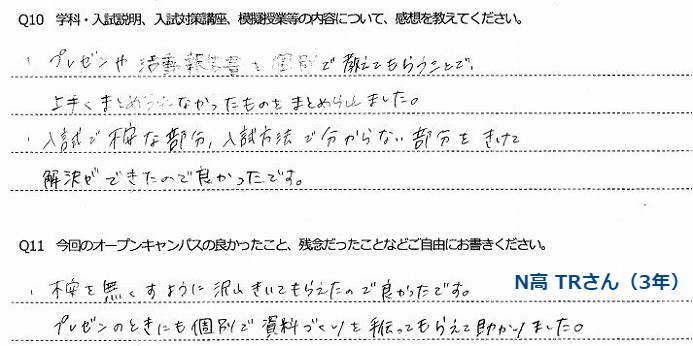 Q10 学科・入試説明、入試対策講座、模擬授業等の内容について、感想を教えてください。
・プレゼンや活動報告書を個別で教えてもらうことで、
上手くまとめられなかったものをまとめられました。
・入試で不安な部分、入試方法で分からない部分をきけて
解決ができたので良かったです。
Q11 今回のオープンキャンパスの良かったこと、残念だったことなどご自由にお書きください。
・不安を無くすように沢山きいてもらえたので良かったです。
N高 TRさん（3年）
プレゼンのときにも個別で資料づくりを手伝ってもらえて助かりました。